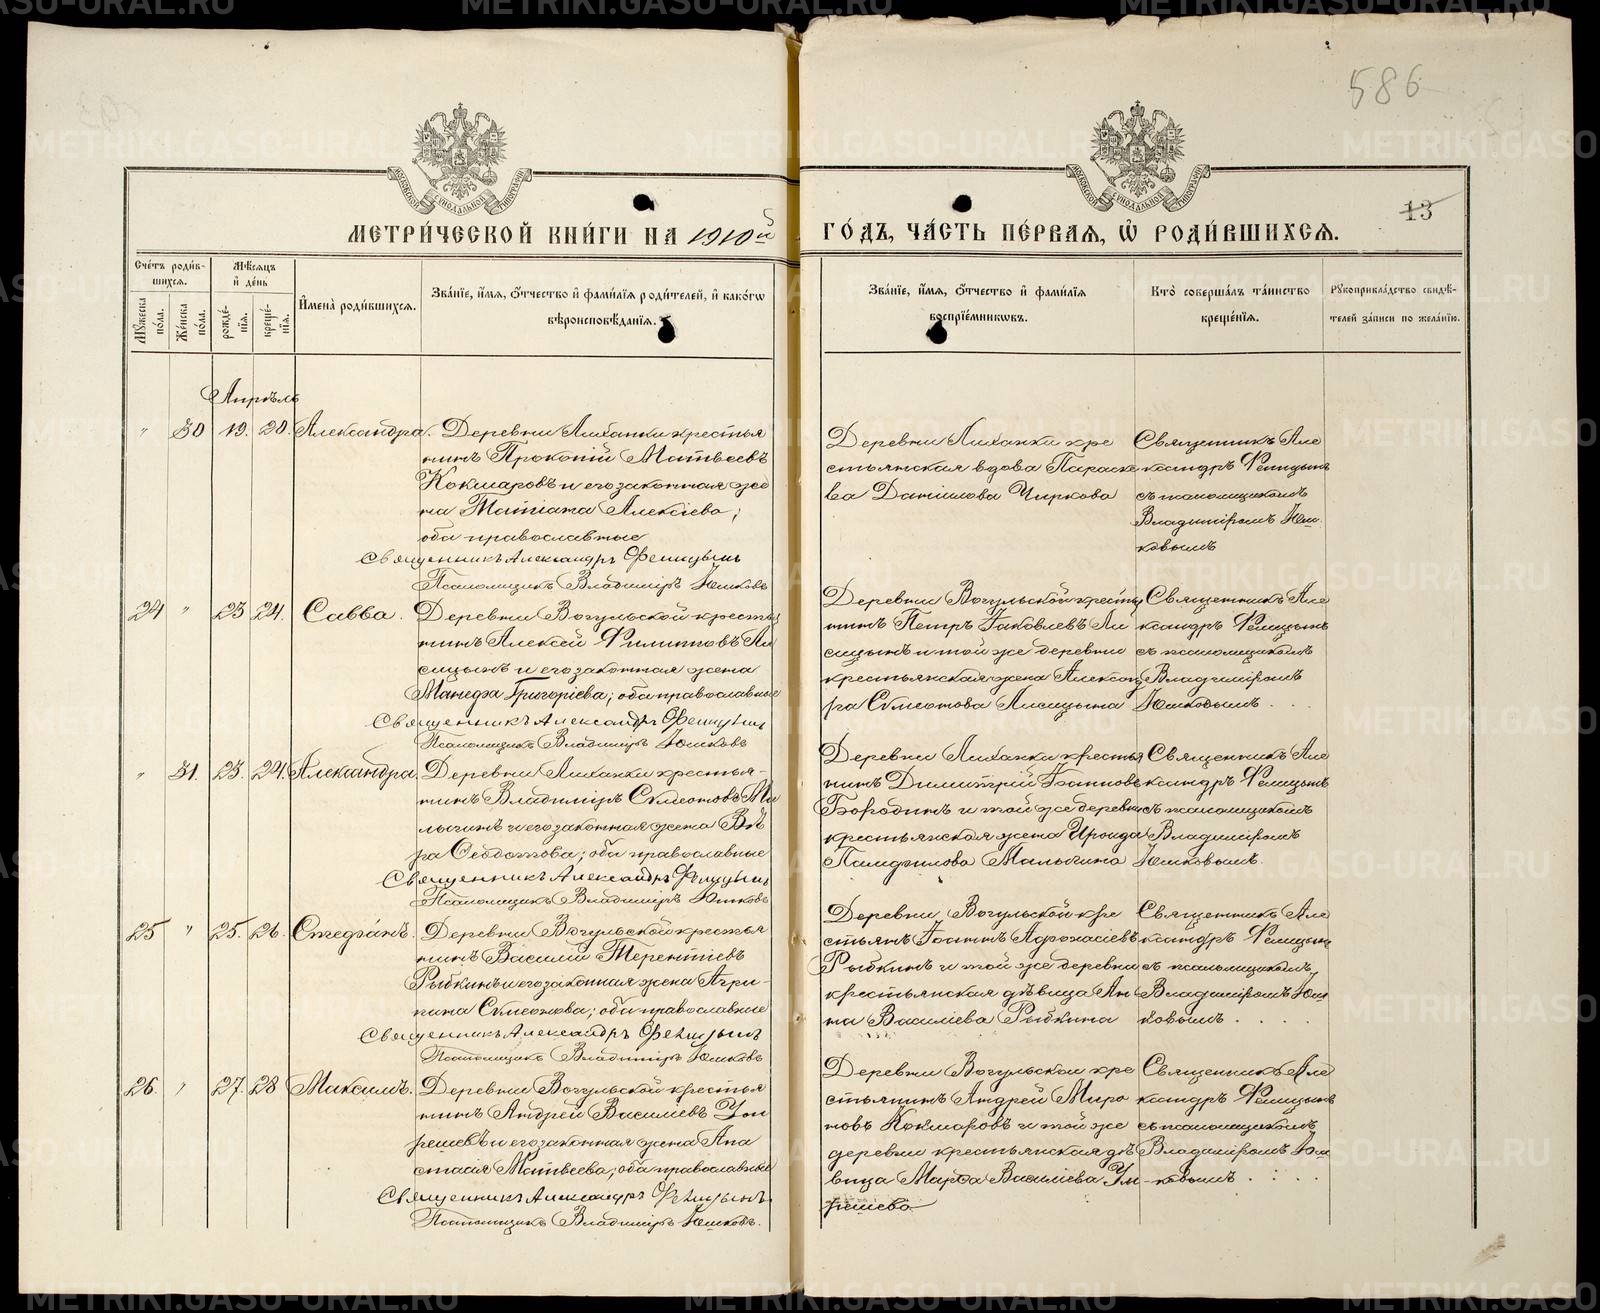 586
13
МЕТРИ́ЧЕСКОЙ КНИ́ГИ НА 1910й ГО́ДЪ, ЧА́СТЬ ПЕ́РВАЯ, Ѡ҆ РОДИ́ВШИХСЯ.
Сче́тъ роди́вшихся.
Мѣ́сяцъ и҆ де́нь
Мꙋ́жеска по́ла.
Же́нска по́ла.
рожде́нїя.
креще́нїя.
И҆мена̀ роди́вшихся.
Зва́нїе, и҆́мя, ѻ҆́тчество и҆ фами́лїя роди́телей, и҆ како́гѡ
вѣроисповѣ́данїя.
Зва́нїе, и҆́мя, ѻ҆́тчество и҆ фами́лїя
воспрїе́мникѡвъ.
Кто̀ соверша́лъ та́инство
креще́нїя.
Рꙋкоприкла́дство свидѣ́-
телей за́писи по жела́нїю.
Апрѣль
" 30 19. 20. Александра. Деревни Лиханки крестья
нинъ Прокопій Матвеевъ
Кокшаровъ и его законная же
на Татіана Алексіева;
оба православные
Священникъ Александръ Феницынъ
Псаломщикъ Владиміръ Юшковъ
Деревни Лиханки кре
стьянская вдова Параске
ва Даніилова Чиркова
Священникъ Але
ксандръ Феницынъ
съ псаломщикомъ
Владиміромъ Юш
ковымъ
24 " 23 24. Савва. Деревни Вогульской кресть
нинъ Алексѣй Филипповъ Ли
сицынъ и его законная жена
Манефа Григоріева; оба православные
Священникъ Александръ Феницынъ
Псаломщикъ Владиміръ Юшковъ
Деревни Вогульской кресть
нинъ Петръ Іаковлевъ Ли
сицынъ и той же деревни
крестьянская жена Алексан
ра Сѵмеонова Лисицына
Священникъ Але
ксандръ Феницынъ
съ псаломщикомъ
Владиміромъ
Юшковымъ . . .
" 31. 23. 24. Александра. Деревни Лиханки крестья-
нинъ Владиміръ Сѵмеоновъ Ма
лыгинъ и его законная жена Вѣ
ра Ѳеодотова; оба православные
Священникъ Александръ Феницынъ
Псаломщикъ Владиміръ Юшковъ
Деревни Лиханки крестья
нинъ Димитрій Іоанновъ
Бородинъ и той же деревни
крестьянская жена Ироида
Памфилова Малыгина
Священникъ Але
ксандръ Феницынъ
съ псаломщикомъ
Владиміромъ
Юшковымъ.
25 " 25. 26. Стефанъ. Деревни Вогульской крестья
нинъ Василій Терентіевъ
Рыбкинъ и его законная жена Агри-
пина Сѵмеонова; оба православные
Священникъ Александръ Феницынъ
Псаломщикъ Владиміръ Юшковъ
Деревни Вогульской кре
стьянъ Іоаннъ Аѳонасіевъ
Рыбкинъ и той же деревни
крестьянская дѣвица Ан
на Василіева Рыбкина
Священникъ Але
ксандръ Феницынъ
съ псаломщикомъ
Владиміромъ Юш
ковымъ . . . .
26. " 27. 28 Максимъ. Деревни Вогульской крестья
нинъ Андрей Василіевъ Уп
решевъ и его законная жена Ана
стасія Матвеева; оба православные
Священникъ Александръ Феницынъ
Псаломщикъ Владиміръ Юшковъ.
Деревни Вогульской кре
стьянинъ Андрей Миро
новъ Кокшаровъ и той же
деревни крестьянская дѣ
вица Марѳа Василіева
Священникъ Але
ксандръ Феницынъ
съ псаломщикомъ
Владиміромъ Юш
-ковымъ . . . .